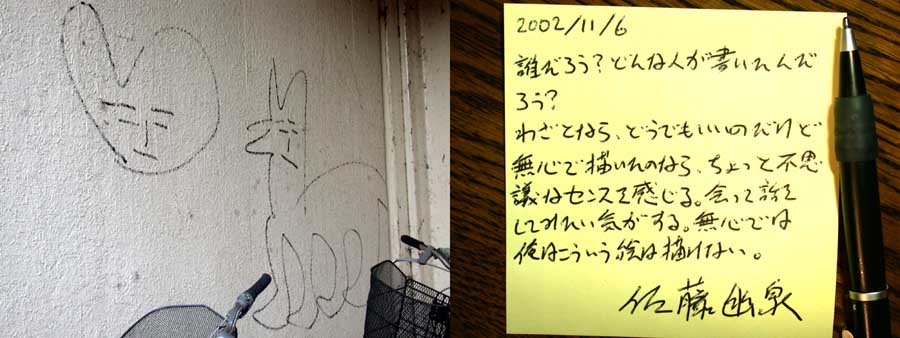 2002/11/6
誰だろう?どんな人が書いたんだ
ろう?
わざとなら、どうでもいいのだけど
無心で描いたのなら、ちょっと不思
議なセンスを感じる。会って話を
してみたい気がする。無心では
俺はこういう絵は描けない。
佐藤幽泉